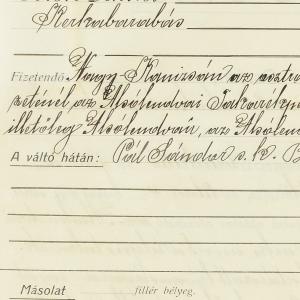 Kerkabarabás
Fizetendő Nagy-Kanizsán az osztrá
zeténél az Alsólendvai Takarékp
illetőleg Alsólendván, az Alsólen
A váltó hátán: Pál Sándor s. k. B
Másolat fillér bélyeg.